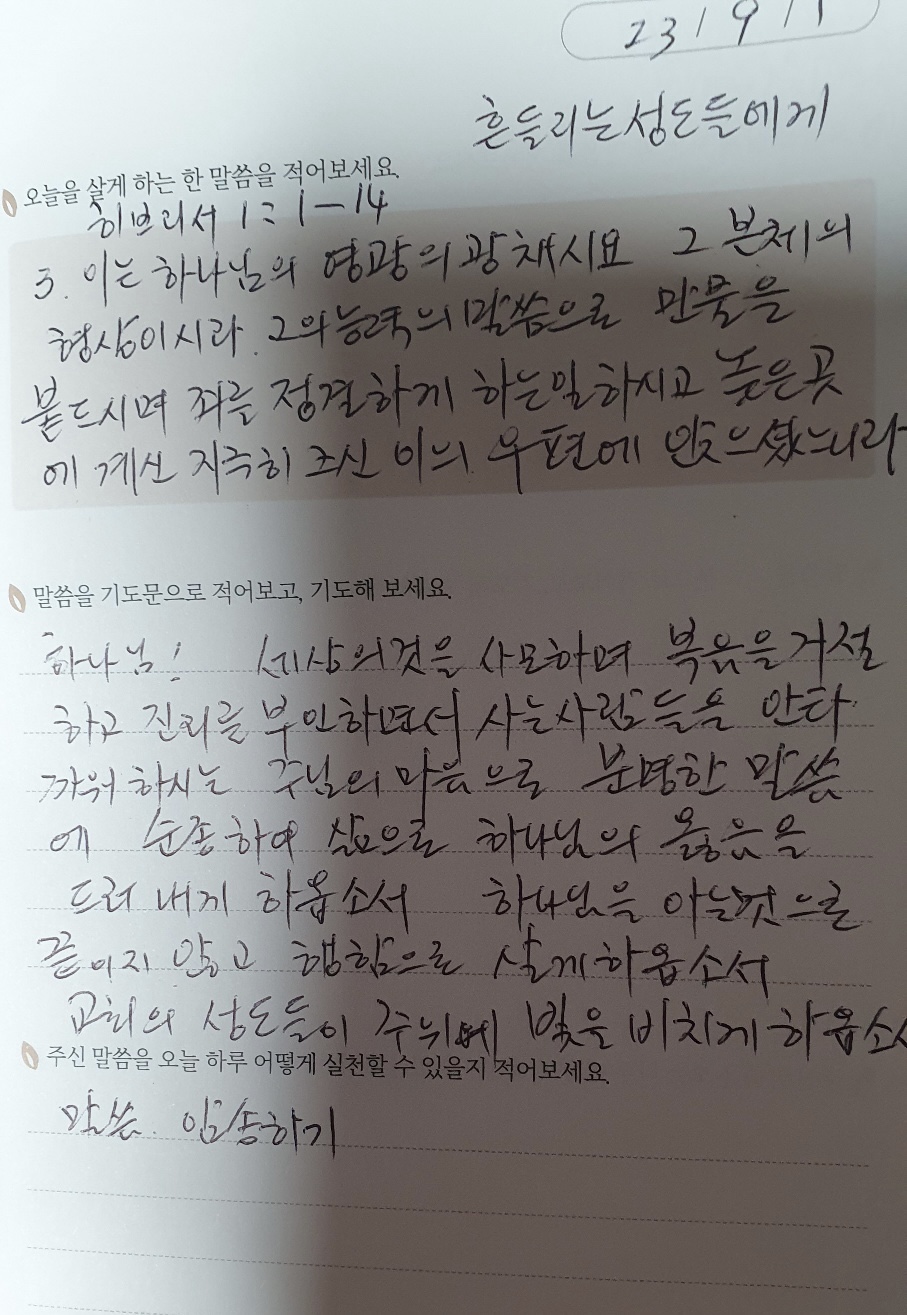 23 / 9 / 1
흔들리는 성도들에게
오늘을 살게 하는 한 말씀을 적어보세요.
히브리서 1:1-14
3. 이는 하나님의 영광의 광채시요 그 본체의
형상이시라. 그의 능력의 말씀으로 만물을
붙드시며 죄를 정결하게 하는일 하시고 높은 곳
에 계신 지극히 크신 이의 우편에 앉으셨느니라
말씀을 기도문으로 적어보고, 기도해 보세요.
하나님! 세상의것을 사모하며 복음을 거절
하고 진리를 부인하면서 사는사람들을 안타
까워 하시는 주님의 마음으로 분명한 말씀
에 순종하여 삶으로 하나님의 옳음을
드러 내게 하옵소서 하나님을 아는것으로
끝이지 않고 행함으로 살게하옵소서
교회의 성도들이 주위에 빛을 비치게 하옵소서
주신 말씀을 오늘 하루 어떻게 실천할 수 있을지 적어보세요.
말씀. 암송하기